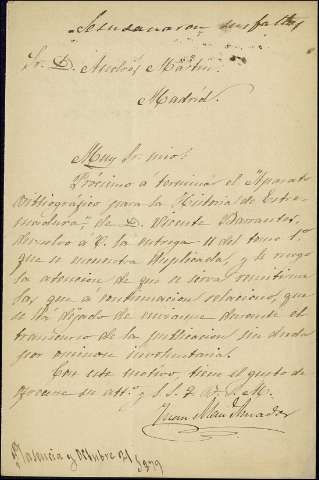 Se
Sr. D. Andrés Martin.
Madrid.
Muy Sr. mio:
Próximo a terminar el "Aparato
Bibliográfico para la Historia de Estre-
madura", de D. Vicente Barrantes,
devuelvo á V. la entrega 11 del tomo 1º
que se encuentra triplicada, y le ruego
la atencion de que se sirva remitirme
las que a continuacion relaciono, que
se ha dejado de enviarme durante el
transcurso de la publicacion sin duda
por omision involuntaria.
Con este motivo, tiene el gusto de
ofrecerse su att.º y S. S. Q. B. S. M.
Juan Amador
Valencia y Octubre 21
1879